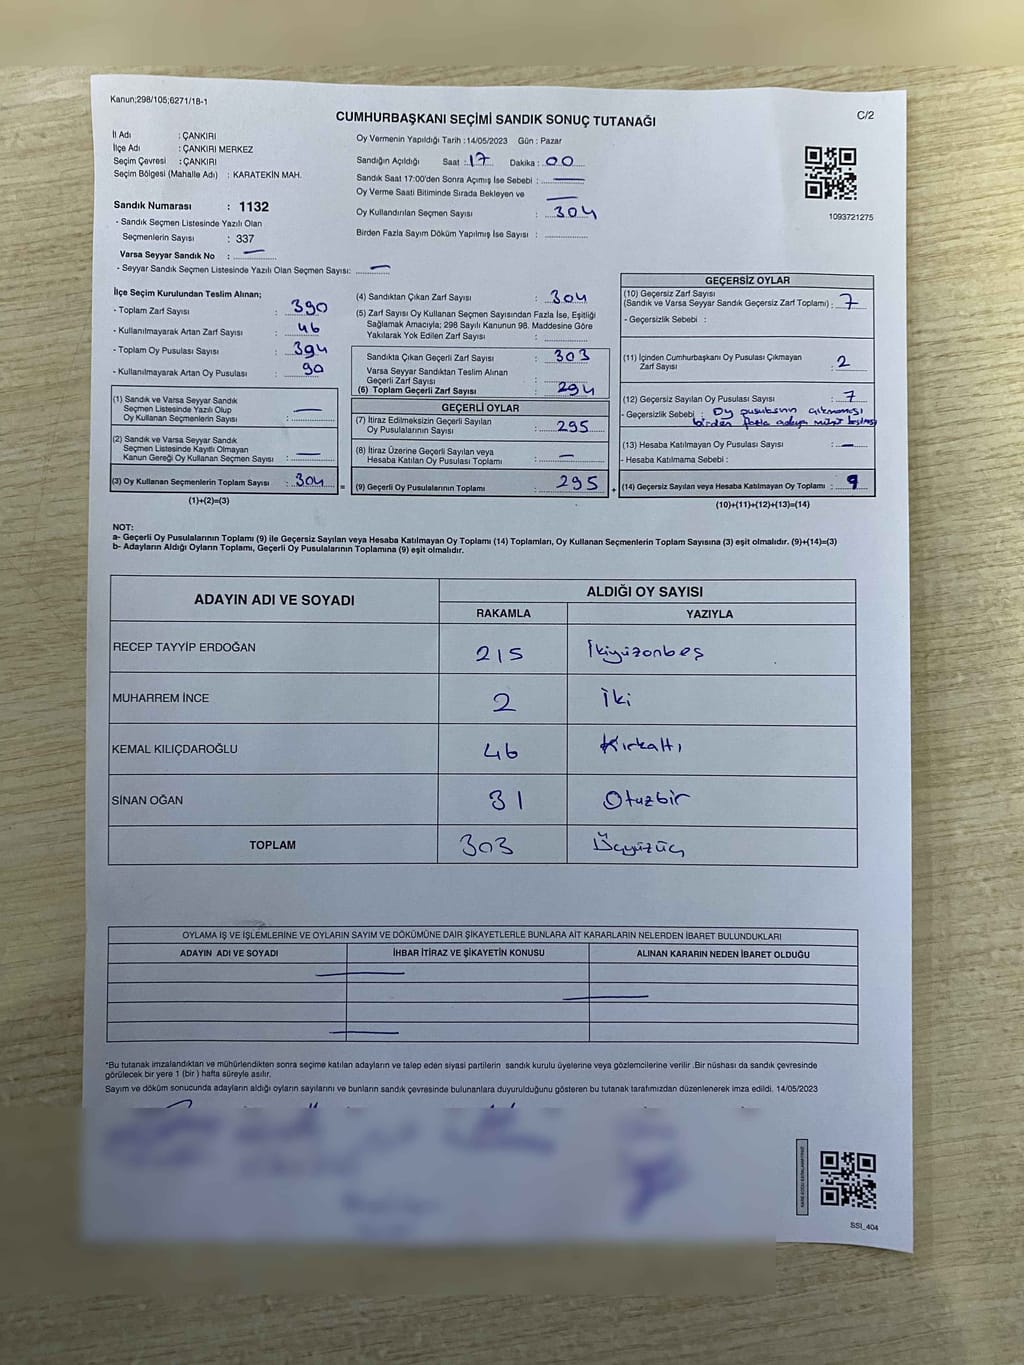 Kanun;298/105;6271/18-1
C/2
CUMHURBAŞKANI SEÇİMİ SANDIK SONUÇ TUTANAĞI
İl Adı : ÇANKIRI
İlçe Adı : ÇANKIRI MERKEZ
Seçim Çevresi : ÇANKIRI
Seçim Bölgesi (Mahalle Adı) : KARATEKİN MAH.
Sandık Numarası : 1132
- Sandık Seçmen Listesinde Yazılı Olan
Seçmenlerin Sayısı : 337
Varsa Seyyar Sandık No : —
- Seyyar Sandık Seçmen Listesinde Yazılı Olan Seçmen Sayısı: —
Oy Vermenin Yapıldığı Tarih :14/05/2023 Gün : Pazar
Sandığın Açıldığı Saat : 17 Dakika : 00
Sandık Saat 17:00'den Sonra Açımış İse Sebebi : —
Oy Verme Saati Bitiminde Sırada Bekleyen ve —
Oy Kullandırılan Seçmen Sayısı : 304
Birden Fazla Sayım Döküm Yapılmış İse Sayısı :
1093721275
İlçe Seçim Kurulundan Teslim Alınan;
- Toplam Zarf Sayısı : 390
- Kullanılmayarak Artan Zarf Sayısı : 46
- Toplam Oy Pusulası Sayısı : 394
- Kullanılmayarak Artan Oy Pusulası : 90
(1) Sandık ve Varsa Seyyar Sandık
Seçmen Listesinde Yazılı Olup
Oy Kullanan Seçmenlerin Sayısı : —
(2) Sandık ve Varsa Seyyar Sandık
Seçmen Listesinde Kayıtlı Olmayan
Kanun Gereği Oy Kullanan Seçmen Sayısı : —
(3) Oy Kullanan Seçmenlerin Toplam Sayısı : 304
(1)+(2)=(3)
(4) Sandıktan Çıkan Zarf Sayısı : 304
(5) Zarf Sayısı Oy Kullanan Seçmen Sayısından Fazla İse, Eşitliği
Sağlamak Amacıyla; 298 Sayılı Kanunun 98. Maddesine Göre
Yakılarak Yok Edilen Zarf Sayısı :
Sandıkta Çıkan Geçerli Zarf Sayısı : 303
Varsa Seyyar Sandıktan Teslim Alınan
Geçerli Zarf Sayısı :
(6) Toplam Geçerli Zarf Sayısı : 294
GEÇERLİ OYLAR
(7) İtiraz Edilmeksizin Geçerli Sayılan
Oy Pusulalarının Sayısı : 295
(8) İtiraz Üzerine Geçerli Sayılan veya
Hesaba Katılan Oy Pusulası Toplamı : —
(9) Geçerli Oy Pusulalarının Toplamı : 295
=
+
GEÇERSİZ OYLAR
(10) Geçersiz Zarf Sayısı
(Sandık ve Varsa Seyyar Sandık Geçersiz Zarf Toplamı) : 7
- Geçersizlik Sebebi :
(11) İçinden Cumhurbaşkanı Oy Pusulası Çıkmayan
Zarf Sayısı : 2
(12) Geçersiz Sayılan Oy Pusulası Sayısı : 7
- Geçersizlik Sebebi : Oy pusulasının çıkmaması
birden fazla adaya mühür basılması
(13) Hesaba Katılmayan Oy Pusulası Sayısı : —
- Hesaba Katılmama Sebebi :
(14) Geçersiz Sayılan veya Hesaba Katılmayan Oy Toplamı : 9
(10)+(11)+(12)+(13)=(14)
NOT:
a- Geçerli Oy Pusulalarının Toplamı (9) ile Geçersiz Sayılan veya Hesaba Katılmayan Oy Toplamı (14) Toplamları, Oy Kullanan Seçmenlerin Toplam Sayısına (3) eşit olmalıdır. (9)+(14)=(3)
b- Adayların Aldığı Oyların Toplamı, Geçerli Oy Pusulalarının Toplamına (9) eşit olmalıdır.
ADAYIN ADI VE SOYADI
ALDIĞI OY SAYISI
RAKAMLA YAZIYLA
RECEP TAYYİP ERDOĞAN 215 İkiyüzonbeş
MUHARREM İNCE 2 İki
KEMAL KILIÇDAROĞLU 46 Kırkaltı
SİNAN OĞAN 31 Otuzbir
TOPLAM 303 Üçyüzüç
OYLAMA İŞ VE İŞLEMLERİNE VE OYLARIN SAYIM VE DÖKÜMÜNE DAİR ŞİKAYETLERLE BUNLARA AİT KARARLARIN NELERDEN İBARET BULUNDUKLARI
ADAYIN ADI VE SOYADI İHBAR İTİRAZ VE ŞİKAYETİN KONUSU ALINAN KARARIN NEDEN İBARET OLDUĞU
*Bu tutanak imzalandıktan ve mühürlendikten sonra seçime katılan adayların ve talep eden siyasi partilerin sandık kurulu üyelerine veya gözlemcilerine verilir .Bir nüshası da sandık çevresinde
görülecek bir yere 1 (bir ) hafta süreyle asılır.
Sayım ve döküm sonucunda adayların aldığı oyların sayılarını ve bunların sandık çevresinde bulunanlara duyurulduğunu gösteren bu tutanak tarafımızdan düzenlenerek imza edildi. 14/05/2023
SSİ_404